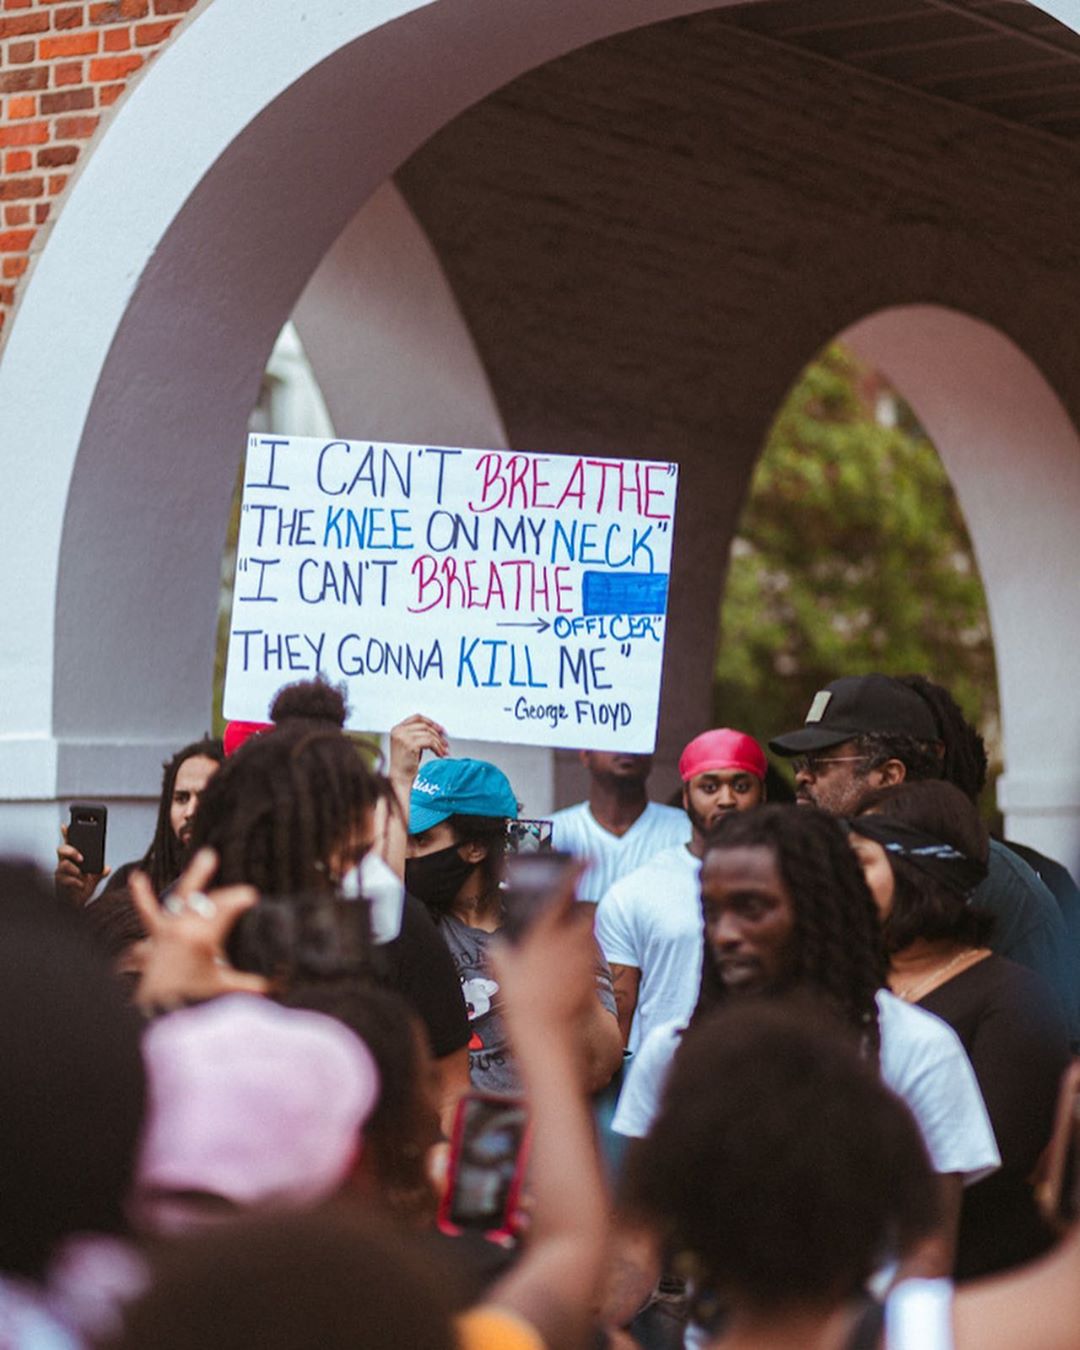 "I CAN'T BREATHE"
"THE KNEE ON MY NECK"
"I CAN'T BREATHE
→ OFFICER"
THEY GONNA KILL ME"
-George FlOYD